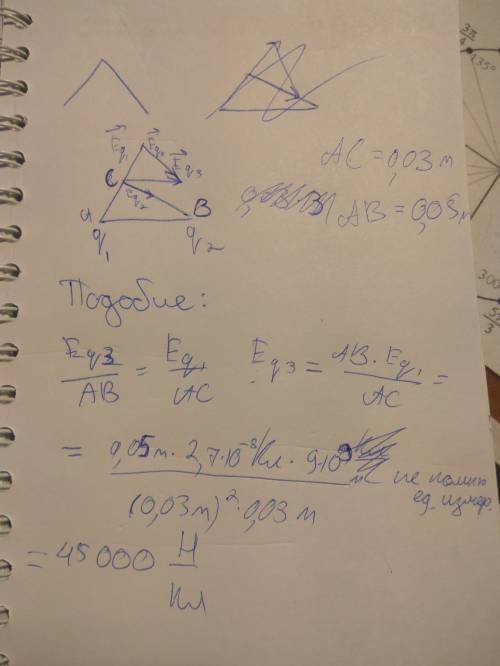 3π/4
135°
E⃗q₁ E⃗q₂ E⃗q3
C Eq₂
a B
q₁ q₂
AC = 0,03 м
AB = 0,05 м
300°
5π/3
Подобие:
Eq3/AB = Eq₁/AC Eq3 = AB · Eq₁/AC =
= 0,05м · 2,7·10⁻⁸Кл · 9·10⁹/(0,03м)² · 0,03 м не помню
ед. измер.
= 45000 Н/Кл